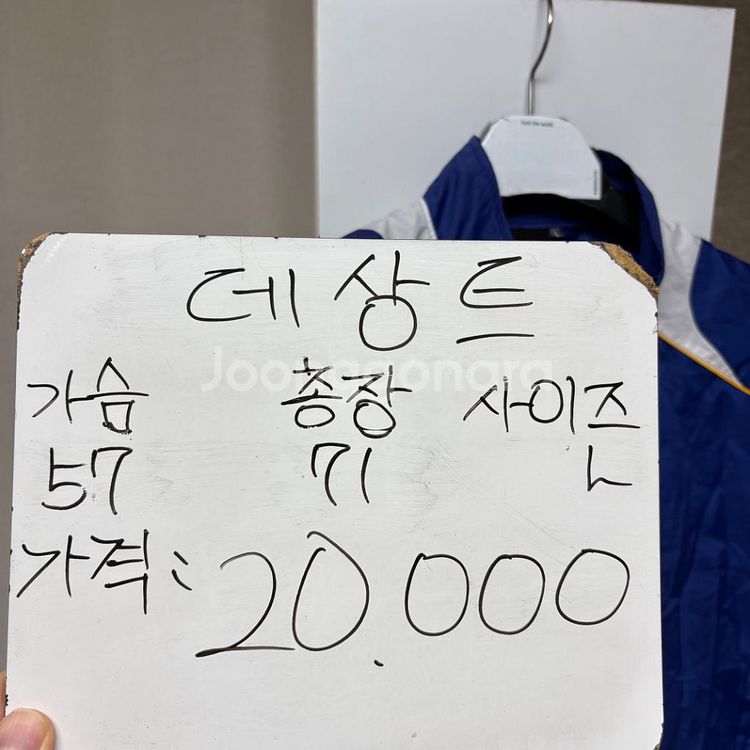 데상트
Joonggonara
가슴 총장 사이즈
57 71 L
가격: 20.000